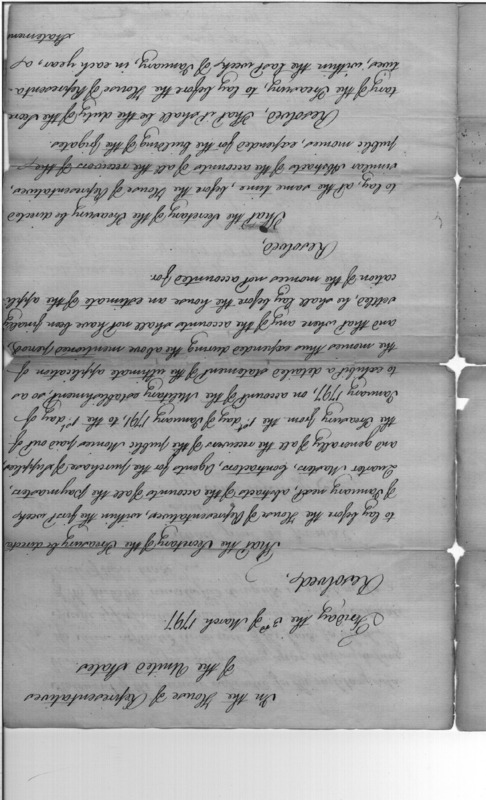 In the House of Representatives
of the United States
Friday the 3rd of March 1797.
Resolved,
That the Secretary of the Treasury be directed
to lay before the House of Representatives, within the first week
of January next, abstracts of the accounts of all Paymasters,
Quarter Masters, Contractors, Agents for the purchase of supplies
and generally of all the receivers of the public Monies paid out of
the Treasury from the 1st day of January 1791, to the 1st day of
January 1797, on account of the Military establishment, so as
to exhibit a detailed statement of the ultimate application of
the monies thus expended during the above mentioned period,
and that where any of the accounts shall not have been finally
settled he shall lay before the house an estimate of the appli-
cation of the monies not accounted for.
Resolved,
That the Secretary of the Treasury be directed
to lay, at the same time, before the House of Representatives,
similar Abstracts of the accounts of all the receivers of the
public monies, expended for the building of the frigates
Resolved, That it shall be the duty of the Secre
tary of the Treasury, to lay before the House of Representa-
tives, within the last week of January, in each year, a
Statement